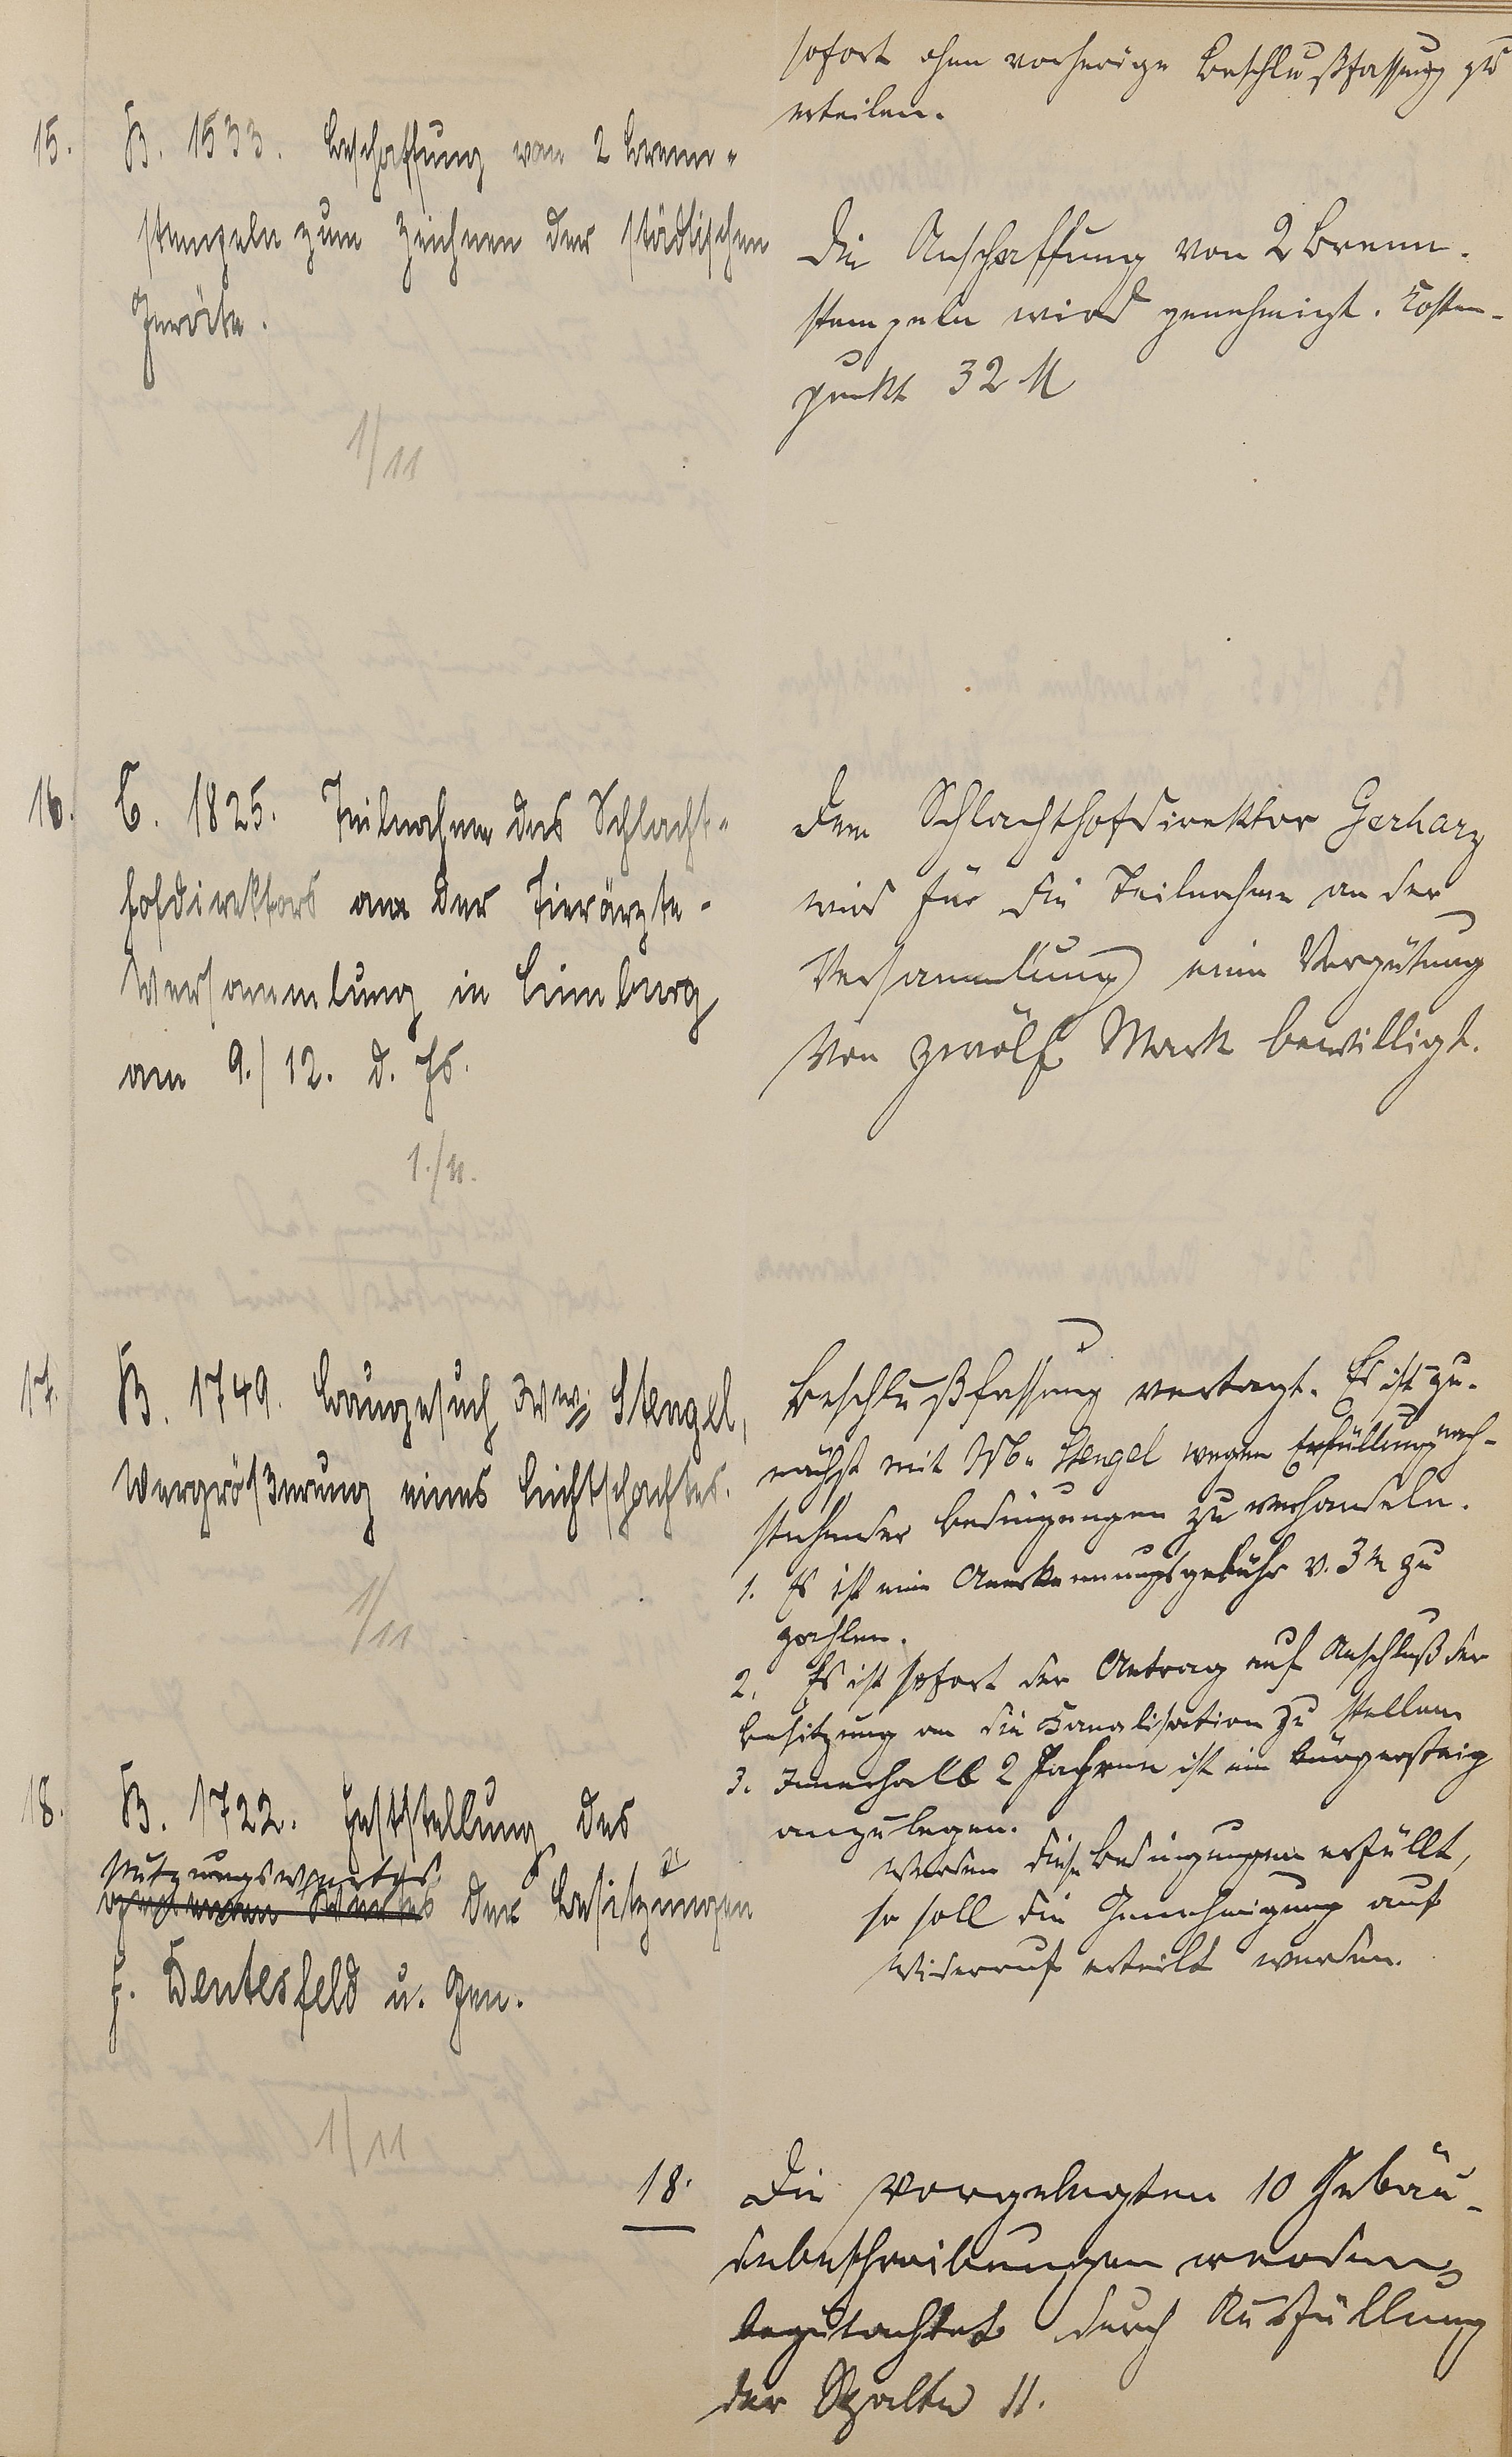 sofort ohne vorherige Beschlußfassung zu
erteilen.
15. B. 1533. Beschaffung von 2 Brenn-
stempeln zum Zeichnen der städtischen
Geräte.
1/11
Die Anschaffung von 2 Brenn-
stempeln wird genehmigt. Kosten-
punkt 32 M
16. C. 1825. Teilnahme des Schlacht-
hofdirektors an der Tierärzte-
Versammlung in Limburg
am 9./12. d. Js.
1./11.
Dem Schlachthofdirektor Gerharz
wird für die Teilnahme an der
Versammlung eine Vergütung
von zwölf Mark bewilligt.
17. B. 1749. Baugesuch Wwe. Stengel,
Vergrößerung eines Lichtschachtes.
1/11
Beschlußfassung vertagt. Es ist zu-
nächst mit Ww. Stengel wegen Erfüllung nach-
stehender Bedingungen zu verhandeln.
1. Es ist eine Anerkennungsgebühr v. 3 M zu
zahlen.
2. Es ist sofort der Antrag auf Anschluß der
Besitzung an die Kanalisation zu stellen
3. Innerhalb 2 Jahren ist ein Bürgersteig
anzulegen.
Werden diese Bedingungen erfüllt,
so soll die Genehmigung auf
Widerruf erteilt werden.
18. B. 1722. Feststellung des
Nutzungswertes
gemeinen Wertes der Besitzungen
F. Dentesfeld u. Gen.
1/11
18. Die vorgelegten 10 Gebäu-
debeschreibungen werden
begutachtet durch Ausfüllung
der Spalte 11.